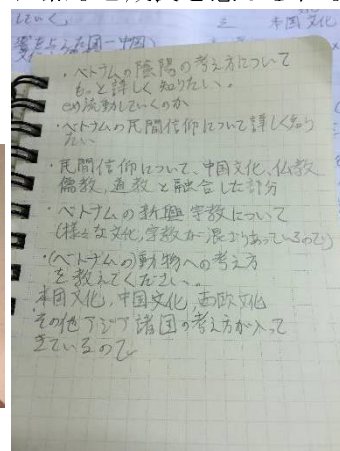 していく
三 本国文化
・ベトナムの陰陽の考え方について
もっと詳しく知りたい。
流動していくのか
・ベトナムの民間信仰について詳しく知り
たい
・民間信仰について、中国文化、仏教
儒教、道教と融合した部分
・ベトナムの新興宗教について
(様々な文化、宗教が混ざりあっているので)
・(ベトナムの)動物への考え方
を教えてください。
本国文化、中国文化、西欧文化
その他アジア諸国の考え方が入って
きているので